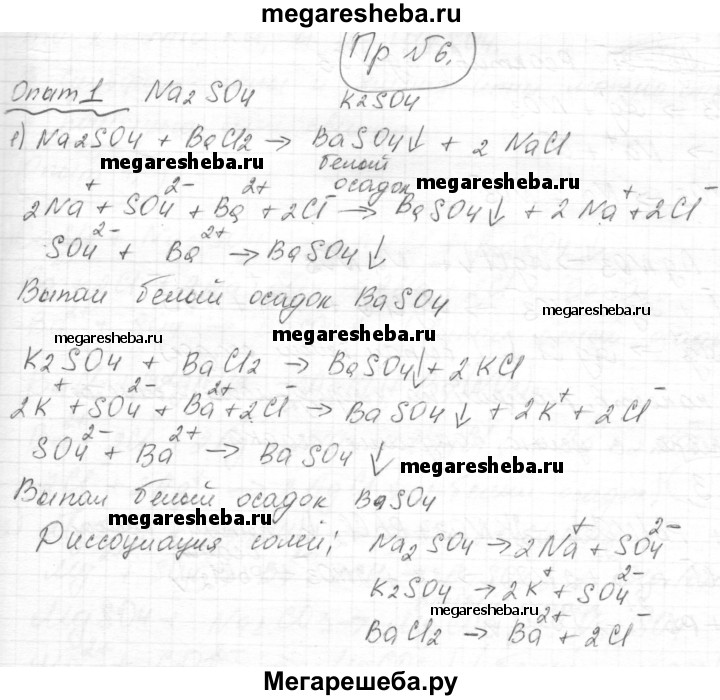 megaresheba.ru
Пр №6.
Опыт 1 Na2SO4 K2SO4
1) Na2SO4 + BaCl2 → BaSO4↓ + 2 NaCl
белый
осадок
megaresheba.ru megaresheba.ru
2Na⁺ + SO4²⁻ + Ba²⁺ + 2Cl⁻ → BaSO4↓ + 2Na⁺ + 2Cl⁻
SO4²⁻ + Ba²⁺ → BaSO4↓
Выпал белый осадок BaSO4
megaresheba.ru megaresheba.ru megaresheba.ru
K2SO4 + BaCl2 → BaSO4↓ + 2KCl
2K⁺ + SO4²⁻ + Ba²⁺ + 2Cl⁻ → BaSO4↓ + 2K⁺ + 2Cl⁻
SO4²⁻ + Ba²⁺ → BaSO4↓
megaresheba.ru
Выпал белый осадок BaSO4
megaresheba.ru
Диссоциация солей; Na2SO4 → 2Na⁺ + SO4²⁻
K2SO4 → 2K⁺ + SO4²⁻
megaresheba.ru
BaCl2 → Ba²⁺ + 2Cl⁻
Мегарешеба.ру